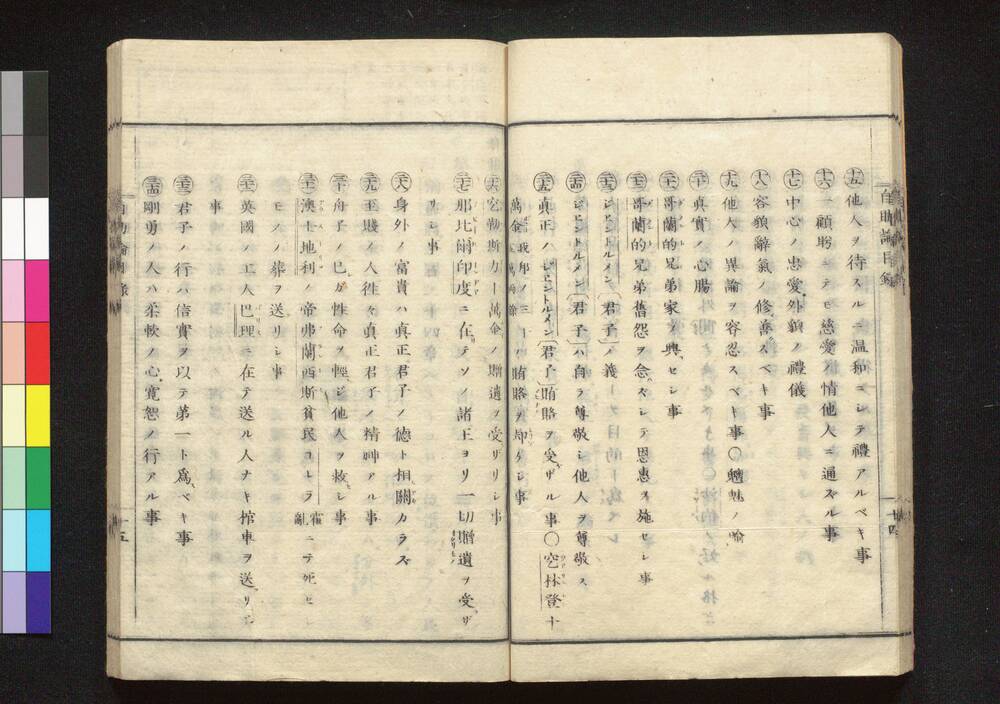 自助論目錄
十五 他人ヲ待スルニ温和ニシテ禮アルベキ事
十六 一顧眄ニテモ慈愛ノ情他人ニ通スル事
十七 中心ノ忠愛外貌ノ禮儀
十八 容貌辭氣ノ修善スベキ事
十九 他人ノ異論ヲ容忍スベキ事〇魑魅ノ喩
二十 真實ノ心腸
二十一 哥蘭的兄弟家ヲ興セシ事
二十二 哥蘭的兄弟舊怨ヲ念ズシテ恩惠ヲ施セシ事
二十三 ゼントルメン〔君子〕ノ義
二十四 ゼントルメン〔君子〕ハ自ラ尊敬シ他人ヲ尊敬ス
二十五 真正ハゼントルメン〔君子〕賄賂ヲ受ザル事〇空林登十
十四
萬金 賄賂ヲ却ケシ事
二十六 勒斯力十萬金ノ贈遺ヲ受ザリシ事
二十七 那比爾印度ニ在テソノ諸王ヨリ一切贈遺ヲ受ザ
リシ事
二十八 身外ノ富貴ハ真正君子ノ德ト相關カラズ
二十九 至賤ノ人徃々真正君子ノ精神アル事
三十 舟子ノ己ガ性命ヲ輕ジ他人ヲ救シ事
三十一 澳土地利ノ帝弗蘭西斯貧民コレラ〔霍亂〕ニテ死セシ
モノノ葬ヲ送リシ事
三十二 英國ノ工人巴理ニ在テ送ル人ナキ棺車ヲ送リシ
事
三十三 君子ノ行ハ信實ヲ以テ第一ト為ベキ事
三十四 剛勇ノ人ハ柔軟ノ心寛恕ノ行アル事
十五